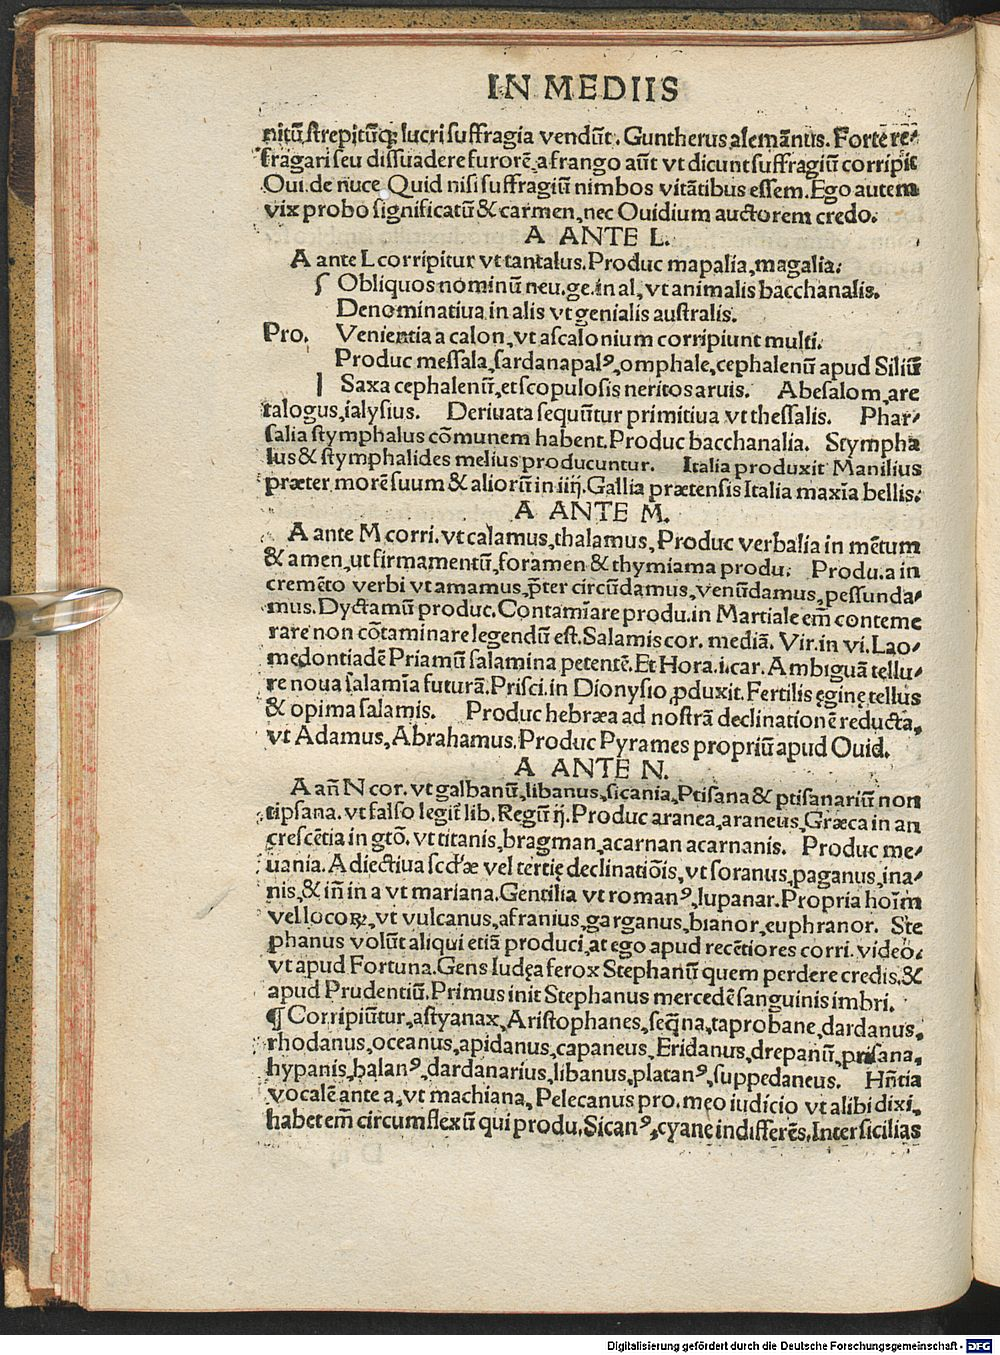 IN MEDIIS
nitū, strepitūq; lucri suffragia vendūt. Guntherus alemānus. Forte re⸗
fragari seu dissuadere furorē, a frango aūt vt dicunt suffragiū corripit
Oui. de nuce Quid nisi suffragiū nimbos vitātibus essem. Ego autem
vix probo significatū & carmen, nec Ouidium auctorem credo.
A ANTE L.
A ante L corripitur vt tantalus. Produc mapalia, magalia:
Obliquos nominū neu. ge. in al, vt animalis bacchanalis.
Denominatiua in alis vt genialis australis.
Pro. Venientia a calon, vt ascalonium corripiunt multi.
Produc messala, sardanapalꝰ, omphale, cephalenū apud Siliū
Saxa cephalenū, et scopulosis neritos aruis. Abesalom, are
talogus, ialysius. Deriuata sequūtur primitiua vt thessalis. Phar⸗
salia stymphalus cōmunem habent. Produc bacchanalia. Stympha
lus & stymphalides melius producuntur. Italia produxit Manilius
præter morē suum & aliorū in iiij. Gallia prætensis Italia maxīa bellis.
A ANTE M.
A ante M corri. vt calamus, thalamus, Produc verbalia in mētum
& amen, ut firmamentū, foramen & thymiama produ. Produ. a in
cremēto verbi vt amamus, p̄ter circūdamus, venūdamus, pessunda⸗
mus. Dyctamū produc. Contamīare produ. in Martiale em̄ conteme
rare non cōtaminare legendū est. Salamis cor. mediā. Vir. in vi. Lao⸗
medontiadē Priamū salamina petentē. Et Hora. i. car. Ambiguā tellu⸗
re noua salamīa futurā. Prisci. in Dionysio ꝓduxit. Fertilis ęginę tellus
& opima salamis. Produc hebræa ad nostrā declinationē reducta,
vt Adamus, Abrahamus. Produc Pyrames propriū apud Ouid.
A ANTE N.
A añ N cor. vt galbanū, libanus, sicania, Ptisana & ptisanariū non
tipsana. vt falso legit̄ lib. Regū ij. Produc aranea, araneus, Græca in an
crescētia in gtō. vt titanis, bragman, acarnan acarnanis. Produc me⸗
uania. Adiectiua scd'æ vel tertię declinatiōis, vt soranus, paganus, ina⸗
nis, & iñ in a vt mariana. Gentilia vt romanꝰ, lupanar. Propria hoīm
vel locoꝝ, vt vulcanus, afranius, garganus, bianor, euphranor. Ste
phanus volūt aliqui etiā produci, at ego apud recētiores corri. video.
vt apud Fortuna. Gens Iudęa ferox Stephanū quem perdere credis. &
apud Prudentiū. Primus init Stephanus mercedē sanguinis imbri.
¶ Corripiūtur, astyanax, Aristophanes, seq̄na, taprobane, dardanus,
rhodanus, oceanus, apidanus, capaneus, Eridanus, drepanū, prisana,
hypanis, balanꝰ, dardanarius, libanus, platanꝰ, suppedaneus. Hn̄tia
vocalē ante a, vt machiana, Pelecanus pro. meo iudicio vt alibi dixi.
habet em̄ circumflexū qui produ. Sicanꝰ, cyane indifferēs, Inter sicilias
Digitalisierung gefördert durch die Deutsche Forschungsgemeinschaft - DFG